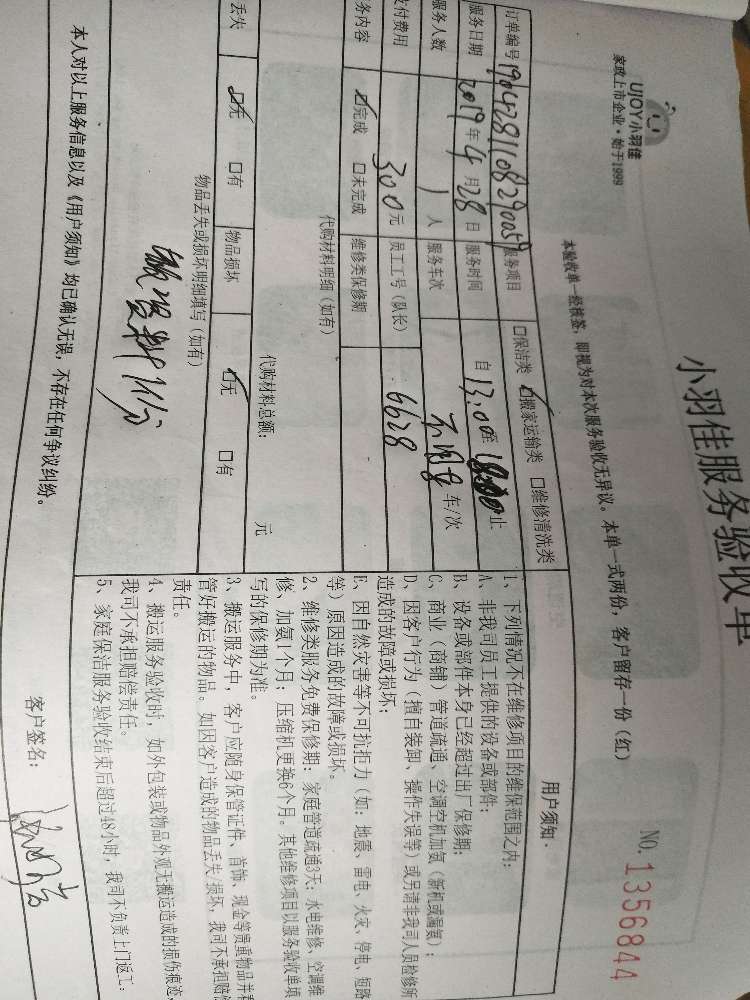 UJOY小羽佳
家政上市企业·始于1999
小羽佳服务验收单
本验收单一经核签，即视为对本次服务验收无异议。本单一式两份，客户留存一份（红）
NO. 1356844
订单编号 190428110829005９ 服务项目 □保洁类 ☑搬家运输类 □维修清洗类
服务日期 2019年4月28日 服务时间 自13:00至18:00止
服务人数 1人 服务车次 不用车 车/次
支付费用 300元 员工工号（队长） 6628
务内容 ☑完成 □未完成 维修类保修期
代购材料明细（如有）
代购材料总额： 元
丢失 ☑无 □有 物品损坏 ☑无 □有
物品丢失或损坏明细填写（如有）
本人对以上服务信息以及《用户须知》均已确认无误，不存在任何争议纠纷。
用户须知：
1、下列情况不在维修项目的维保范围之内：
A、非我司员工提供的设备或部件；
B、设备或部件本身已经超过出厂保修期；
C、商业（商铺）管道疏通、空调空机加氨（新机或漏氨）；
D、因客户行为（擅自装卸、操作失误等）或另请非我司人员检修所
造成的故障或损坏；
E、因自然灾害等不可抗拒力（如：地震、雷电、火灾、停电、短路
等）原因造成的故障或损坏。
2、维修类服务免费保修期：家庭管道疏通3天；水电维修、空调维
修、加氨1个月；压缩机更换6个月。其他维修项目以服务验收单填
写的保修期为准。
3、搬运服务中，客户应随身保管证件、首饰、现金等贵重物品并看
管好搬运的物品。如因客户造成的物品丢失/损坏，我司不承担赔偿
责任。
4、搬运服务验收时，如外包装或物品外观无搬运造成的损伤痕迹，
我司不承担赔偿责任。
5、家庭保洁服务验收结束后超过48小时，我司不负责上门返工；
客户签名：